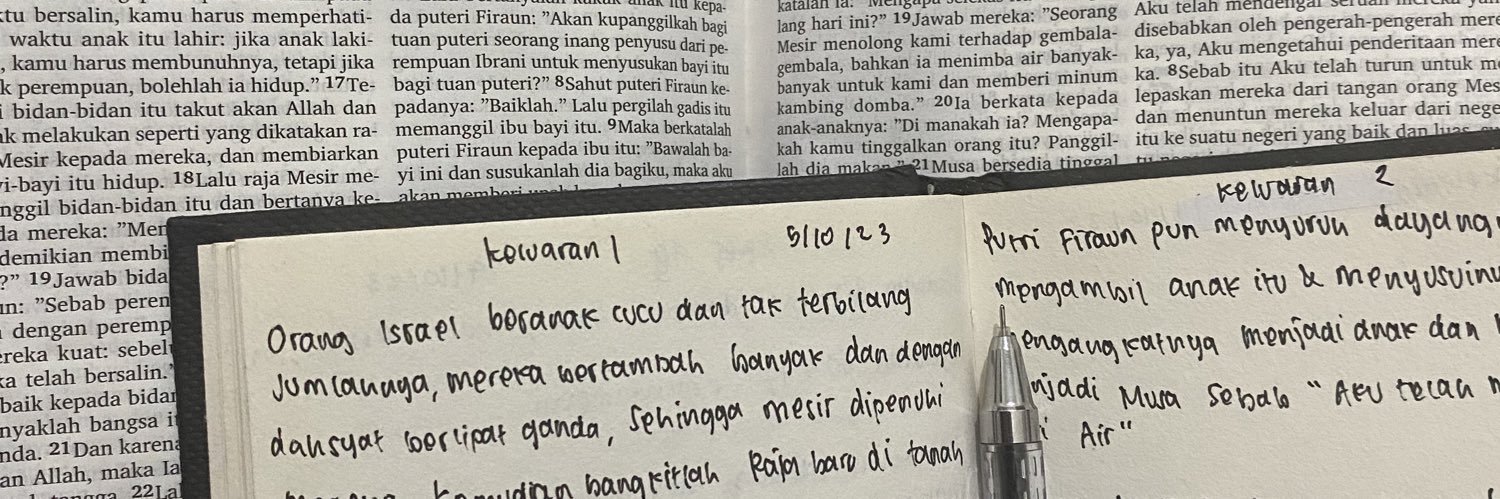 tu bersalin, kamu harus memperhati-
waktu anak itu lahir: jika anak laki-
, kamu harus membunuhnya, tetapi jika
k perempuan, bolehlah ia hidup.” 17Te-
i bidan-bidan itu takut akan Allah dan
ak melakukan seperti yang dikatakan ra-
Mesir kepada mereka, dan membiarkan
yi-bayi itu hidup. 18Lalu raja Mesir me-
nggil bidan-bidan itu dan bertanya ke-
da mereka: ”Men
demikian membi
?” 19Jawab bida
un: ”Sebab peren
dengan peremp
ereka kuat: sebel
ka telah bersalin.”
baik kepada bidan
nyaklah bangsa it
nda. 21Dan karena
an Allah, maka Ia
22La
da puteri Firaun: ”Akan kupanggilkah bagi
tuan puteri seorang inang penyusu dari pe-
rempuan Ibrani untuk menyusukan bayi itu
bagi tuan puteri?” 8Sahut puteri Firaun ke-
padanya: ”Baiklah.” Lalu pergilah gadis itu
memanggil ibu bayi itu. 9Maka berkatalah
puteri Firaun kepada ibu itu: ”Bawalah ba-
yi ini dan susukanlah dia bagiku, maka aku
akan memberi
lang hari ini?” 19Jawab mereka: ”Seorang
Mesir menolong kami terhadap gembala-
gembala, bahkan ia menimba air banyak-
banyak untuk kami dan memberi minum
kambing domba.” 20Ia berkata kepada
anak-anaknya: ”Di manakah ia? Mengapa-
kah kamu tinggalkan orang itu? Panggil-
lah dia makan.” 21Musa bersedia tinggal
Aku telah mendengar seruan mereka
disebabkan oleh pengerah-pengerah mere
ka, ya, Aku mengetahui penderitaan mere
ka. 8Sebab itu Aku telah turun untuk m
lepaskan mereka dari tangan orang Mes
dan menuntun mereka keluar dari nege
itu ke suatu negeri yang baik dan luas
kewaran 1
5/10/23
Orang Israel beranak cucu dan tak terbilang
Jumlahnya, mereka bertambah banyak dan dengan
dahsyat berlipat ganda, sehingga mesir dipenuhi
kemudian bangkitlah Raja baru di tanah
kewaran 2
Putri Firaun pun menyuruh dayang
mengambil anak itu & menyusuinu
engangkatnya menjadi anak dan
njadi Musa Sebab “Aku telah
i Air”